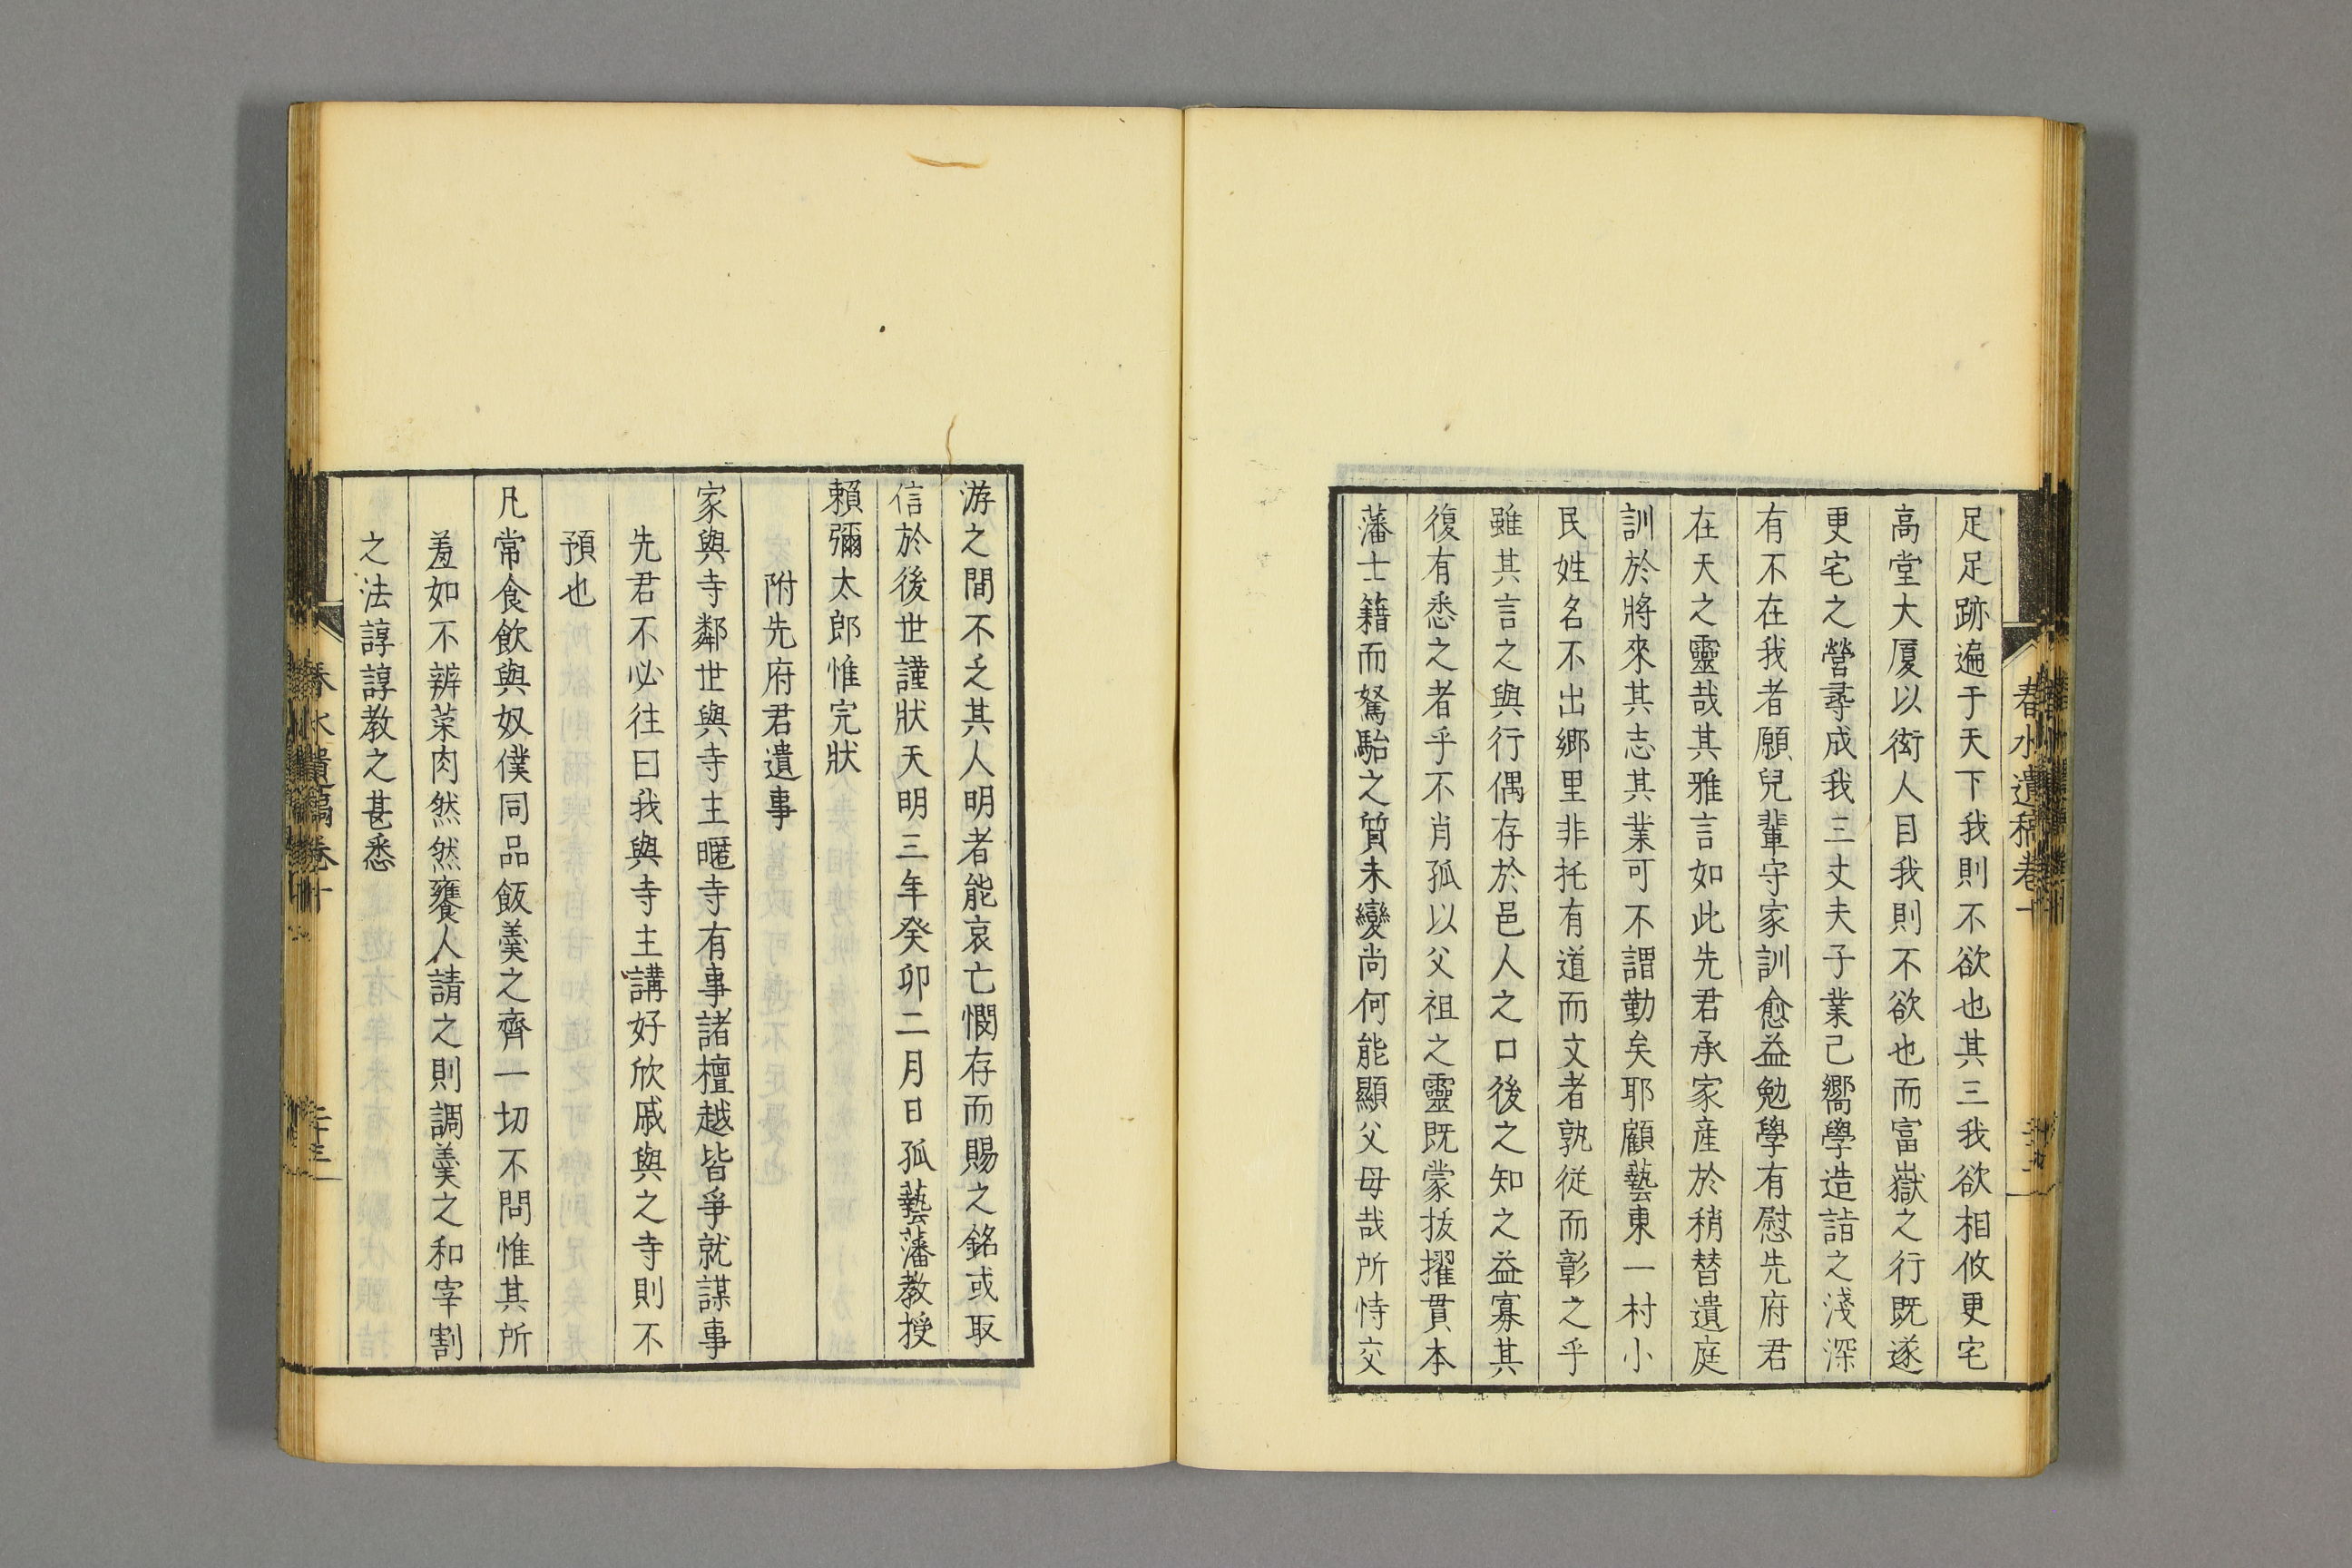 足足跡遍于天下我則不欲也其三我欲相攸更宅
高堂大厦以衒人目我則不欲也而富嶽之行既遂
更宅之營尋成我三丈夫子業已嚮學造詣之淺深
有不在我者願兒輩守家訓愈益勉學有慰先府君
在天之靈哉其雅言如此先君承家産於稍替遺庭
訓於將來其志其業可不謂勤矣耶顧藝東一村小
民姓名不出鄉里非托有道而文者孰從而彰之乎
雖其言之與行偶存於邑人之口後之知之益寡其
復有悉之者乎不肖孤以父祖之靈既蒙抜擢貫本
藩士籍而駑駘之質未變尚何能顯父母哉所恃交
春水遺稿卷十
游之間不乏其人明者能哀亡憫存而賜之銘或取
信於後世謹狀天明三年癸卯二月日孤藝藩教授
賴彌太郎惟完狀
附先府君遺事
家與寺鄰世與寺主暱寺有事諸檀越皆爭就謀事
先君不必往曰我與寺主講好欣戚與之寺則不
預也
凡常食飲與奴僕同品飯羹之齊一切不問惟其所
羞如不辨菜肉然然饔人請之則調羹之和宰割
之法諄諄教之甚悉
春水遺稿卷十
二十三